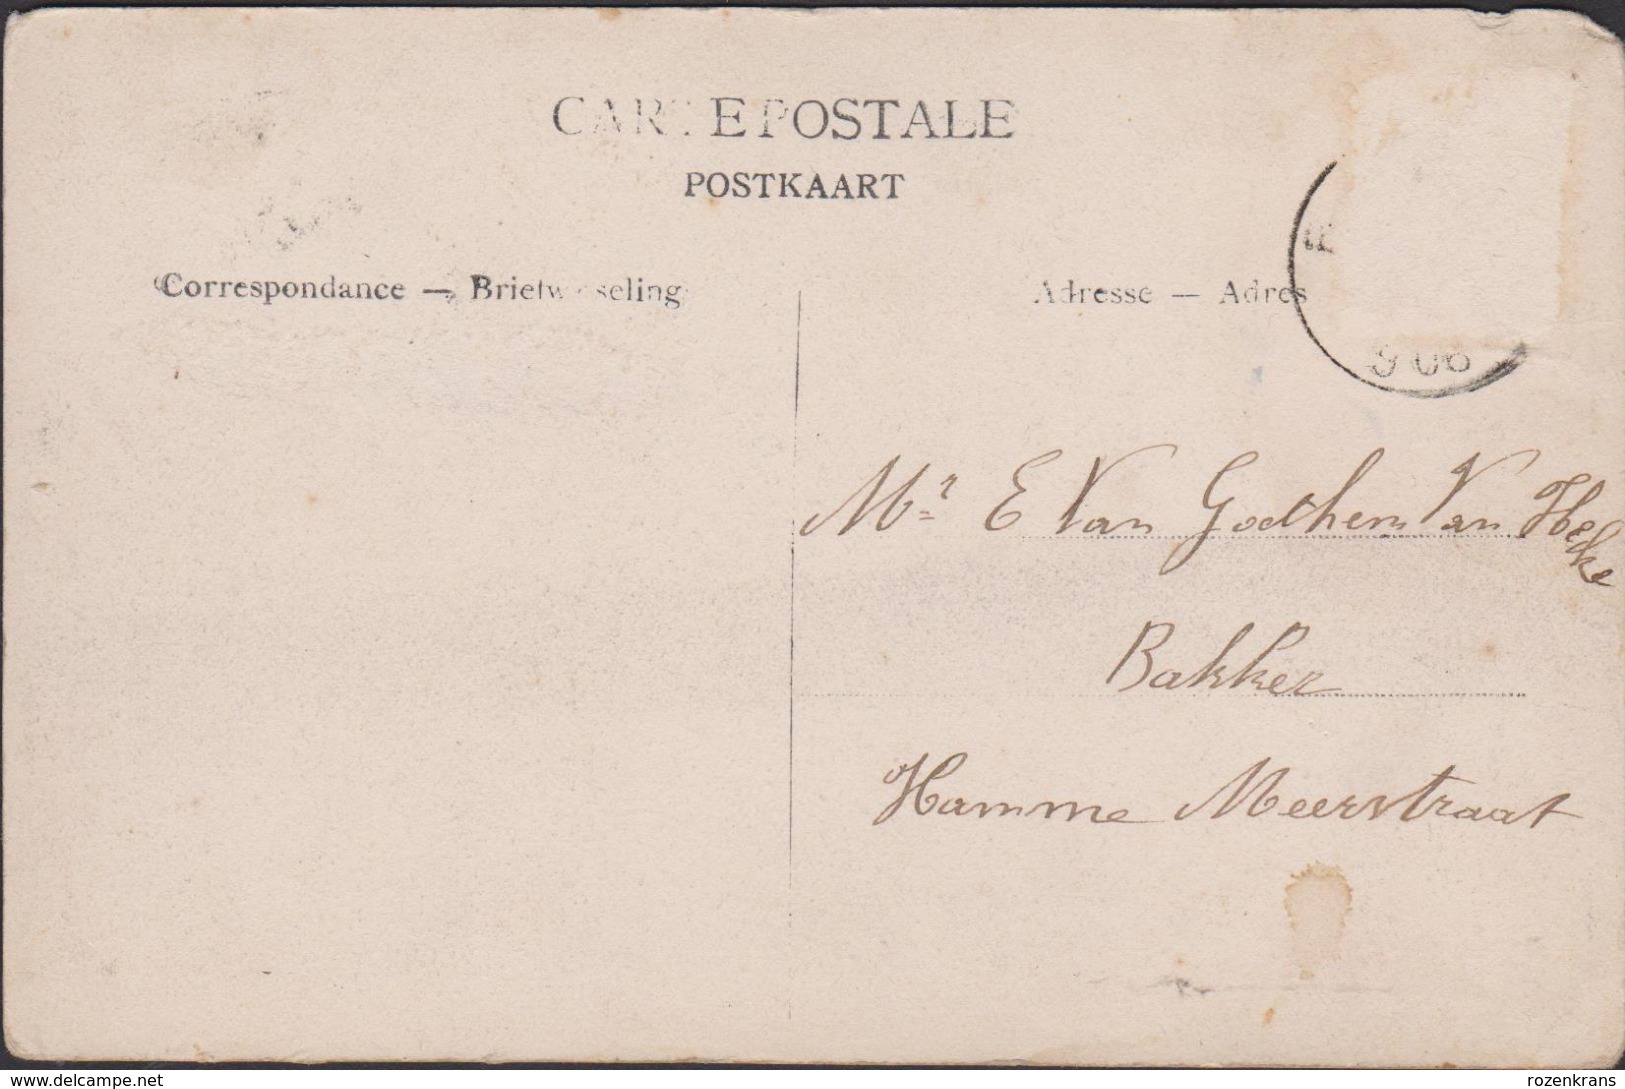 CARTE POSTALE
POSTKAART
Correspondance — Briefwisseling
Adresse — Adres
906
Mr E Van Goethem Van Hecke
Bakker
Hamme Meerstraat
www.delcampe.net
rozenkrans